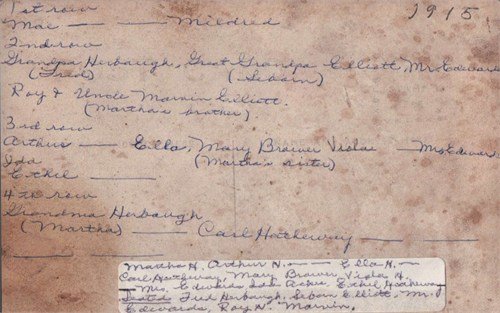 1st row 1915
Mae — — Mildred
2nd row
Grandpa Herbaugh, Great Grandpa Elliott, Mr. Edwards
(Fred) (Seborn)
Roy & Uncle Marvin Elliott.
(Martha's brother).
3rd row
Arthur — Ella, Mary Brower Viola — Mrs. Edwards
Ida (Martha's sister)
Ethel —
4th row
Grandma Herbaugh
(Martha) — Carl Hatheway — —
Martha H. Arthur H. — Ella H. —
Carl Hatheway, Mary Brower, Viola H.
— Mrs. Edwards Ida Acker, Ethel Hatheway
Seated Fred Herbaugh, Seborn Elliott, Mr.
Edwards, Roy H. Marvin.